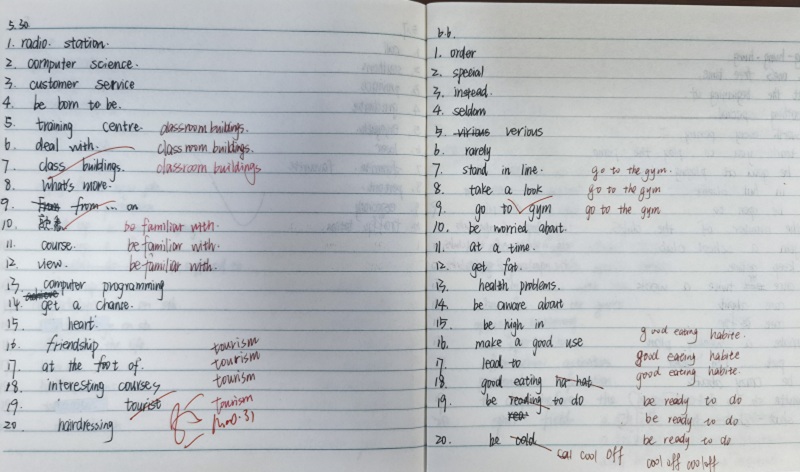 5.30
1. radio. station.
2. computer science.
3. customer service
4. be born to be.
5. training centre. classroom buildings.
6. deal with. classroom buildings.
7. class buildings. classroom buildings
8. what's more.
9. from ... on
10. be familiar with.
11. course. be familiar with.
12. view. be familiar with.
13. computer programming
14. get a chance.
15. heart.
16. friendship tourism
17. at the foot of. tourism
18. interesting courses tourism
19. tourist tourism
20. hairdressing
6.6.
1. order
2. special
3. instead.
4. seldom
5. virious verious
6. rarely
7. stand in line. go to the gym.
8. take a look go to the gym
9. go to gym go to the gym
10. be worried about.
11. at a time.
12. get fat.
13. health problems.
14. be aware about
15. be high in
16. make a good use good eating habite.
17. lead to good eating habite
18. good eating hat good eating habite.
19. be reading to do be ready to do
be ready to do
20. be cold be ready to do
cool off cool off cool off